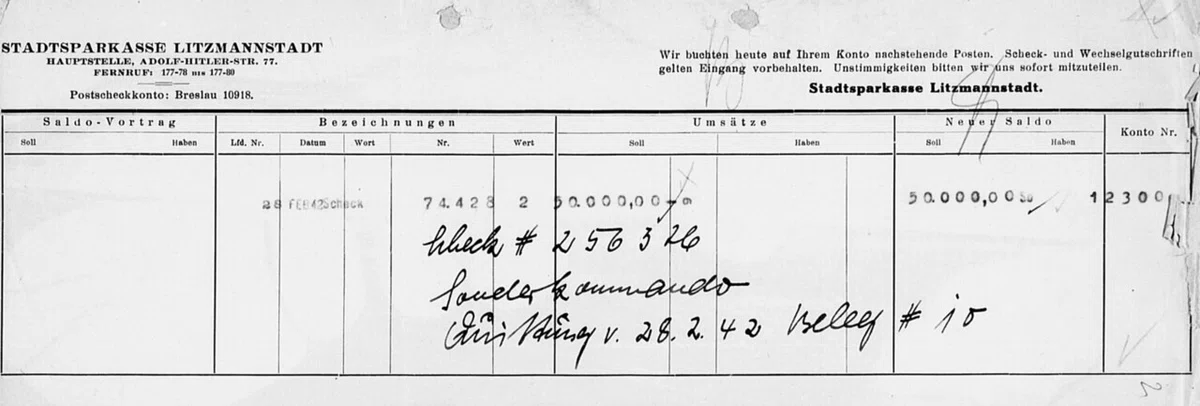 STADTSPARKASSE LITZMANNSTADT
HAUPTSTELLE, ADOLF-HITLER-STR. 77.
FERNRUF: 177-78 BIS 177-80
Postscheckkonto: Breslau 10918.
Wir buchten heute auf Ihrem Konto nachstehende Posten. Scheck- und Wechselgutschriften
gelten Eingang vorbehalten. Unstimmigkeiten bitten wir uns sofort mitzuteilen.
Stadtsparkasse Litzmannstadt.
Saldo-Vortrag Bezeichnungen Umsätze Neuer Saldo Konto Nr.
Soll Haben Lfd. Nr. Datum Wort Nr. Wert Soll Haben Soll Haben
28 FEB42 Scheck 74.428 2 50.000,00 50.000,00 So 12300
Scheck # 256326
Sonderkommando
Quittung v. 28.2.42 Beleg # 10